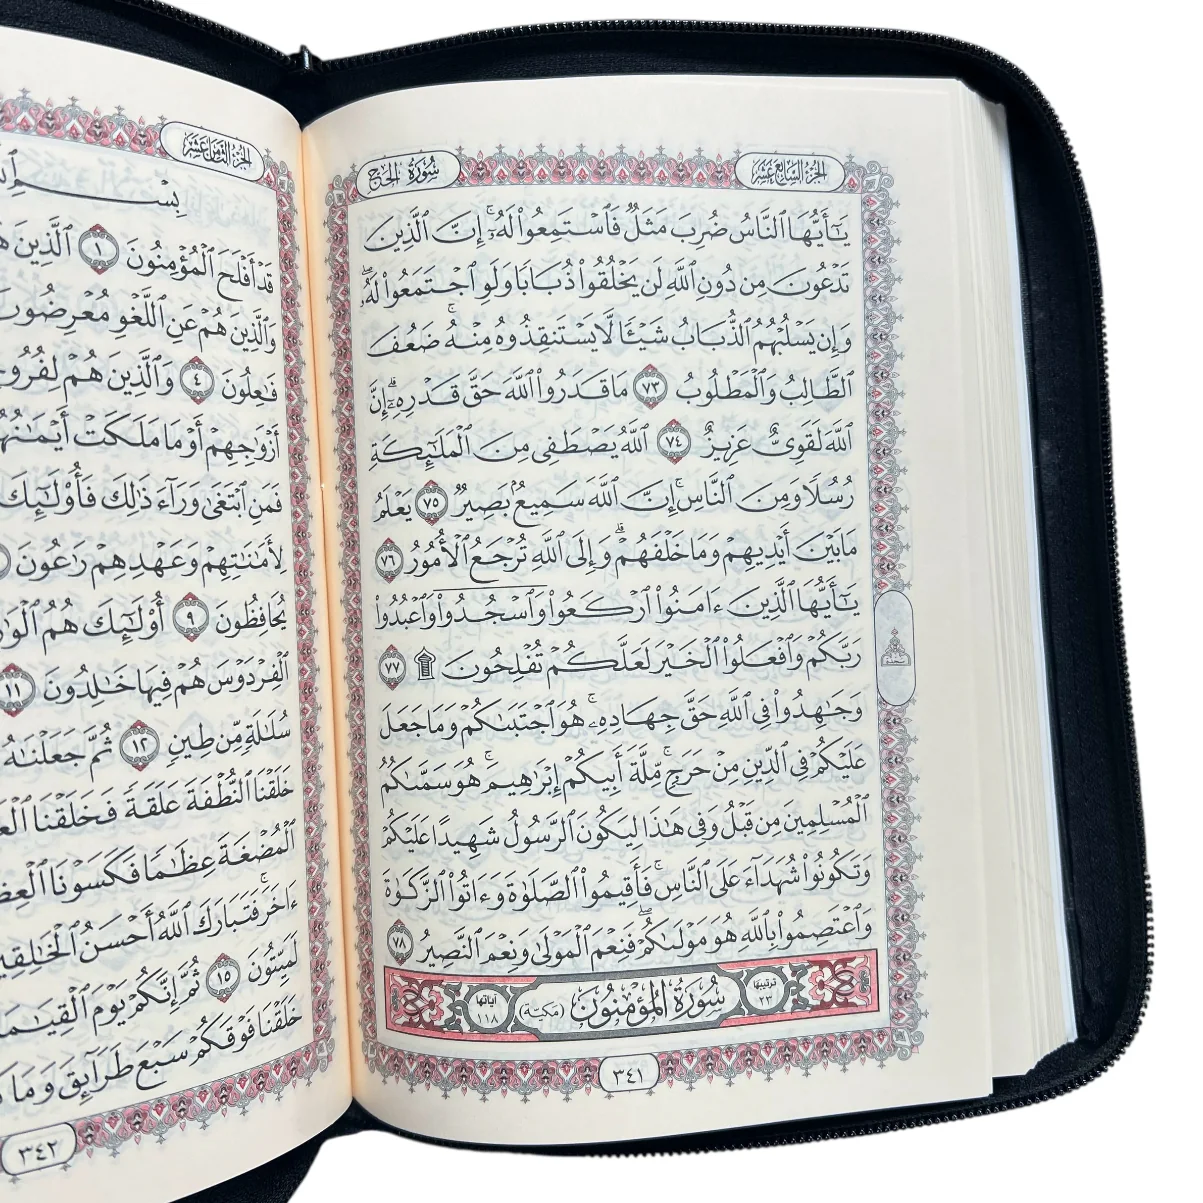 الجزء السابع عشر
سورة الحج
يَٰٓأَيُّهَا ٱلنَّاسُ ضُرِبَ مَثَلٌ فَٱسْتَمِعُوا۟ لَهُۥٓ ۚ إِنَّ ٱلَّذِينَ
تَدْعُونَ مِن دُونِ ٱللَّهِ لَن يَخْلُقُوا۟ ذُبَابًا وَلَوِ ٱجْتَمَعُوا۟ لَهُۥ ۖ
وَإِن يَسْلُبْهُمُ ٱلذُّبَابُ شَيْـًٔا لَّا يَسْتَنقِذُوهُ مِنْهُ ۚ ضَعُفَ
ٱلطَّالِبُ وَٱلْمَطْلُوبُ ٧٣ مَا قَدَرُوا۟ ٱللَّهَ حَقَّ قَدْرِهِۦٓ ۗ إِنَّ
ٱللَّهَ لَقَوِىٌّ عَزِيزٌ ٧٤ ٱللَّهُ يَصْطَفِى مِنَ ٱلْمَلَٰٓئِكَةِ
رُسُلًا وَمِنَ ٱلنَّاسِ ۚ إِنَّ ٱللَّهَ سَمِيعٌۢ بَصِيرٌ ٧٥ يَعْلَمُ
مَا بَيْنَ أَيْدِيهِمْ وَمَا خَلْفَهُمْ ۗ وَإِلَى ٱللَّهِ تُرْجَعُ ٱلْأُمُورُ ٧٦
يَٰٓأَيُّهَا ٱلَّذِينَ ءَامَنُوا۟ ٱرْكَعُوا۟ وَٱسْجُدُوا۟ وَٱعْبُدُوا۟
رَبَّكُمْ وَٱفْعَلُوا۟ ٱلْخَيْرَ لَعَلَّكُمْ تُفْلِحُونَ ۩ ٧٧
وَجَٰهِدُوا۟ فِى ٱللَّهِ حَقَّ جِهَادِهِۦ ۚ هُوَ ٱجْتَبَىٰكُمْ وَمَا جَعَلَ
عَلَيْكُمْ فِى ٱلدِّينِ مِنْ حَرَجٍ ۚ مِّلَّةَ أَبِيكُمْ إِبْرَٰهِيمَ ۚ هُوَ سَمَّىٰكُمُ
ٱلْمُسْلِمِينَ مِن قَبْلُ وَفِى هَٰذَا لِيَكُونَ ٱلرَّسُولُ شَهِيدًا عَلَيْكُمْ
وَتَكُونُوا۟ شُهَدَآءَ عَلَى ٱلنَّاسِ ۚ فَأَقِيمُوا۟ ٱلصَّلَوٰةَ وَءَاتُوا۟ ٱلزَّكَوٰةَ
وَٱعْتَصِمُوا۟ بِٱللَّهِ هُوَ مَوْلَىٰكُمْ ۖ فَنِعْمَ ٱلْمَوْلَىٰ وَنِعْمَ ٱلنَّصِيرُ ٧٨
ترتيبها ٢٣ سُورَةُ المُؤْمِنُون (مكية) آياتها ١١٨
٣٤١
سجدة
الجزء الثامن عشر
بِسْمِ
قَدْ أَفْلَحَ ٱلْمُؤْمِنُونَ ١ ٱلَّذِينَ
وَٱلَّذِينَ هُمْ عَنِ ٱللَّغْوِ مُعْرِضُونَ
فَٰعِلُونَ ٤ وَٱلَّذِينَ هُمْ
أَزْوَٰجِهِمْ أَوْ مَا مَلَكَتْ
فَمَنِ ٱبْتَغَىٰ وَرَآءَ ذَٰلِكَ فَأُو۟لَٰٓئِكَ
لِأَمَٰنَٰتِهِمْ وَعَهْدِهِمْ رَٰعُونَ
يُحَافِظُونَ ٩ أُو۟لَٰٓئِكَ هُمُ
ٱلْفِرْدَوْسَ هُمْ فِيهَا خَٰلِدُونَ ١١
سُلَٰلَةٍ مِّن طِينٍ ١٢ ثُمَّ جَعَلْنَٰهُ
خَلَقْنَا ٱلنُّطْفَةَ عَلَقَةً فَخَلَقْنَا
ٱلْمُضْغَةَ عِظَٰمًا فَكَسَوْنَا
ءَاخَرَ ۚ فَتَبَارَكَ ٱللَّهُ أَحْسَنُ ٱلْخَٰلِقِينَ
لَمَيِّتُونَ ١٥ ثُمَّ إِنَّكُمْ يَوْمَ
خَلَقْنَا فَوْقَكُمْ سَبْعَ طَرَآئِقَ وَمَا
٣٤٢